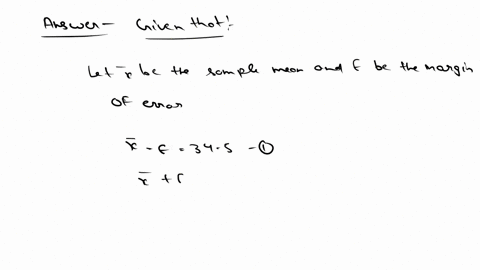 Answer - Given that!
Let x̄ be the sample mean and E be the margin
of error
x̄ - E = 34.5 - ①
x̄ + E